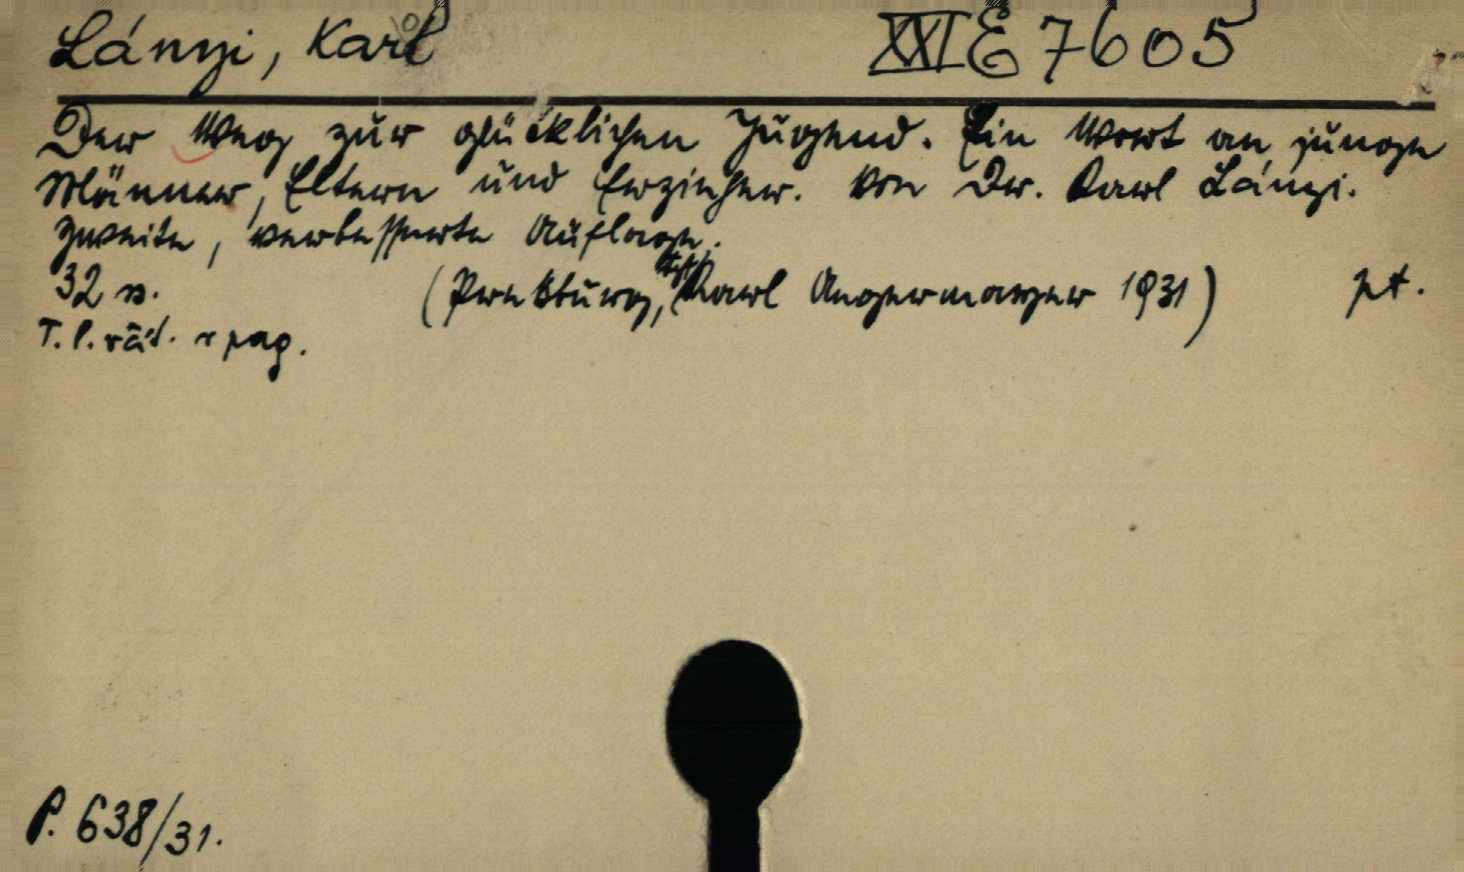 Lányi, Karl XXI E 7605
Der Weg zur glücklichen Jugend. Ein Wort an junge
Männer, Eltern und Erzieher. Von Dr. Karl Lányi.
Zweite, verbesserte Auflage.
32 s. (Preßburg, Karl Angermayer 1931)
pag.
P. 638/31.